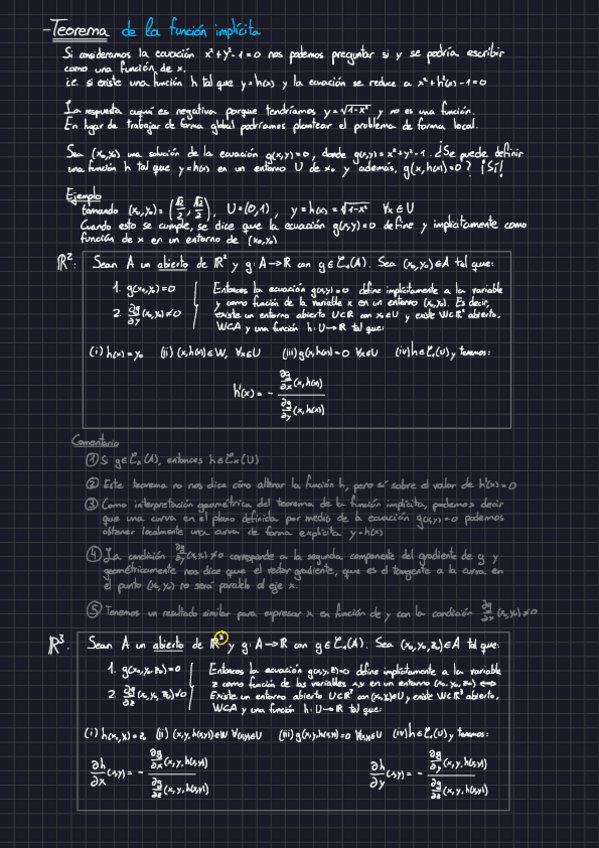 -Teorema de la función implícita
Si consideramos la ecuación x²+y²-1=0 nos podemos preguntar si y se podría escribir
como una función de x.
i.e. si existe una función h tal que y=h(x) y la ecuación se reduce a x²+h²(x)-1=0
La respuesta aquí es negativa porque tendríamos y=√1-x² y no es una función.
En lugar de trabajar de forma global podríamos plantear el problema de forma local.
Sea (x₀,y₀) una solución de la ecuación g(x,y)=0, donde g(x,y)=x²+y²-1. ¿Se puede definir
una función h tal que y=h(x) en un entorno U de x₀ y además, g(x,h(x))=0? ¡Sí!
Ejemplo
tomando (x₀,y₀)=(√2/2, √2/2), U=(0,1), y=h(x)=√1-x² ∀x∈U
Cuando esto se cumple, se dice que la ecuación g(x,y)=0 define y implícitamente como
función de x en un entorno de (x₀,y₀)
ℝ²: Sean A un abierto de ℝ² y g:A→ℝ con g∈C₁(A). Sea (x₀,y₀)∈A tal que:
1. g(x₀,y₀)=0
2. ∂g/∂y(x₀,y₀)≠0
Entonces la ecuación g(x,y)=0 define implícitamente a la variable
y como función de la variable x en un entorno (x₀,y₀). Es decir,
existe un entorno abierto U⊂ℝ con x₀∈U y existe W⊂ℝ² abierto,
W⊂A y una función h:U→ℝ tal que:
(i) h(x₀)=y₀ (ii) (x,h(x))∈W, ∀x∈U (iii) g(x,h(x))=0 ∀x∈U (iv) h∈C₁(U) y, tenemos:
h'(x) = - ∂g/∂x(x,h(x)) / ∂g/∂y(x,h(x))
Comentario
① Si g∈Cₖ(A), entonces h∈Cₖ(U)
② Este teorema no nos dice cómo altrar la función h, pero sí sobre el valor de h'(x)=0
③ Como interpretación geométrica del teorema de la función implícita, podemos decir
que una curva en el plano definida por medio de la ecuación g(x,y)=0 podemos
obtener localmente una curva de forma explícita y=h(x)
④ La condición ∂g/∂y(x,y)≠0 corresponde a la segunda componente del gradiente de g y
geométricamente nos dice que el vector gradiente, que es el tangente a la curva en
el punto (x₀,y₀) no será paralelo al eje x.
⑤ Tenemos un resultado similar para expresar x en función de y con la condición ∂g/∂x(x₀,y₀)≠0
ℝ³ Sean A un abierto de ℝ³ y g:A→ℝ con g∈C₁(A). Sea (x₀,y₀,z₀)∈A tal que:
1. g(x₀,y₀,z₀)=0
2. ∂g/∂z(x₀,y₀,z₀)≠0
Entonces la ecuación g(x,y,z)=0 define implícitamente a la variable
z como función de las variables x,y en un entorno (x₀,y₀,z₀) ⟺
Existe un entorno abierto U⊂ℝ² con (x₀,y₀)∈U y existe W⊂ℝ³ abierto,
W⊂A y una función h:U→ℝ tal que:
(i) h(x₀,y₀)=z₀ (ii) (x,y,h(x,y))∈W ∀(x,y)∈U (iii) g(x,y,h(x,y))=0 ∀(x,y)∈U (iv) h∈C₁(U) y, tenemos:
∂h/∂x(x,y) = - ∂g/∂x(x,y,h(x,y)) / ∂g/∂z(x,y,h(x,y)) ∂h/∂y(x,y) = - ∂g/∂y(x,y,h(x,y)) / ∂g/∂z(x,y,h(x,y))